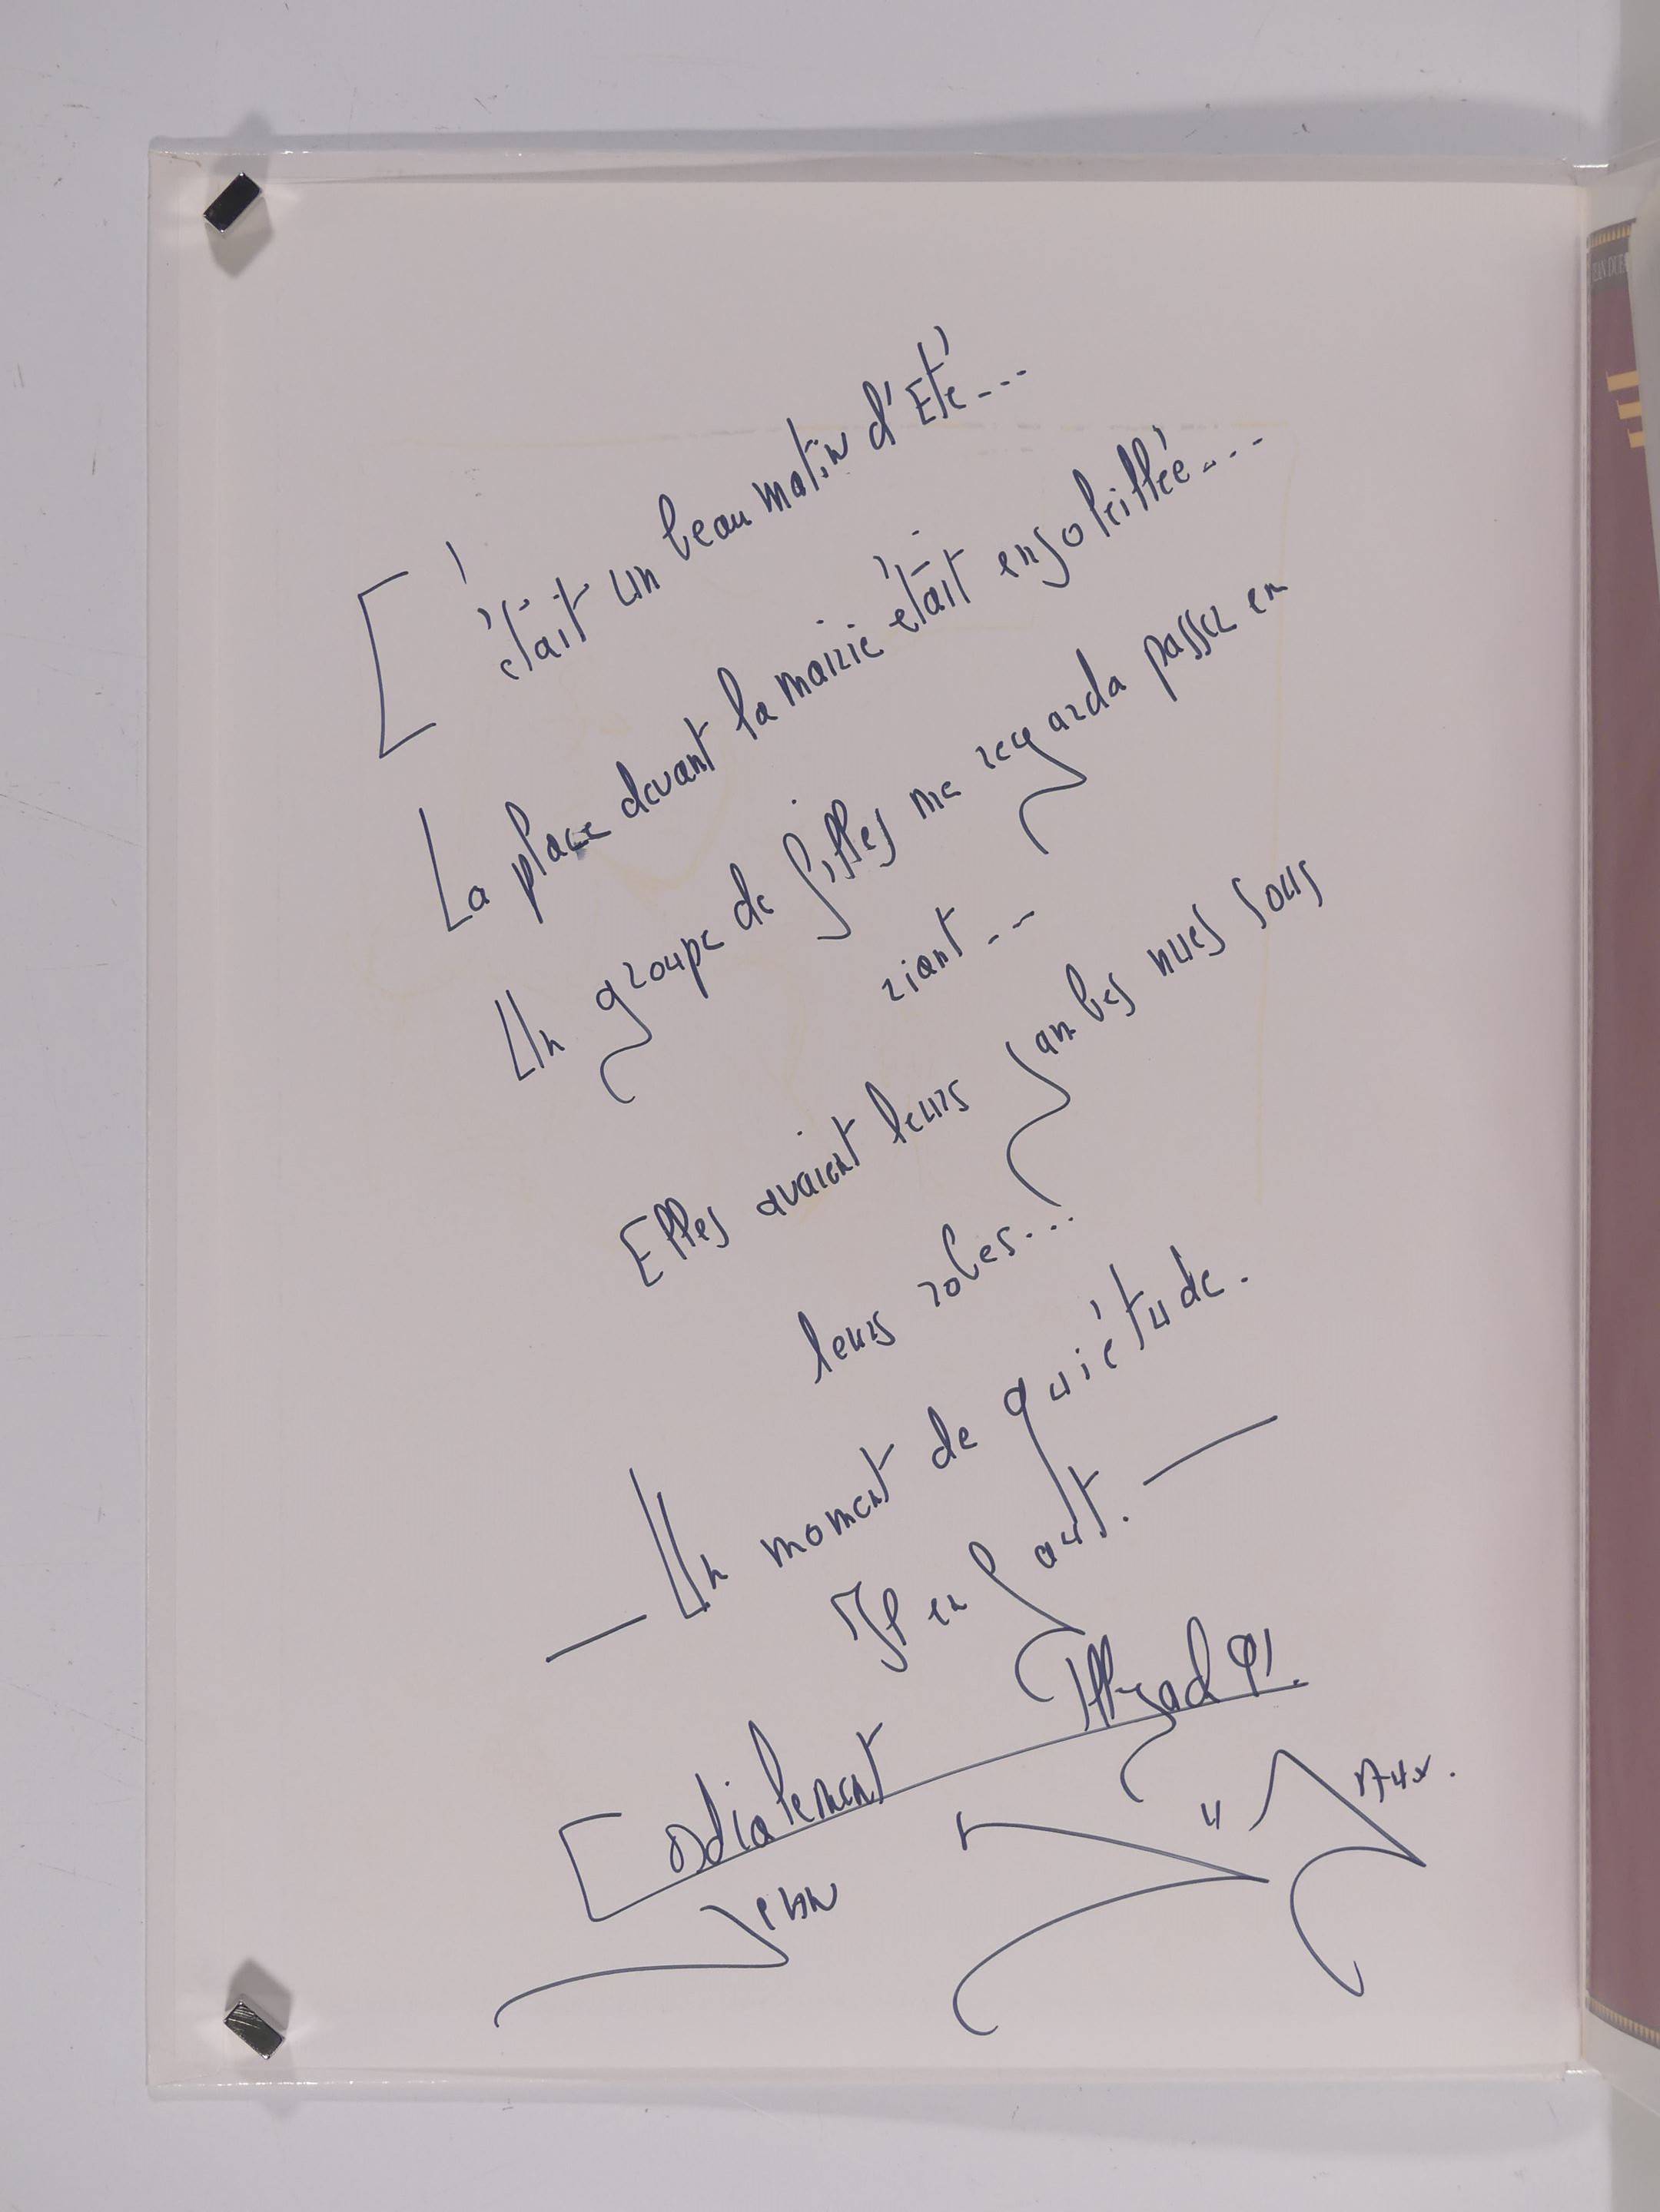 C'était un beau matin d'Eté...
La place devant la mairie était ensoleillée....
Un groupe de filles me regarda passer en
riant...
Elles avaient leurs jambes nues sous
leurs robes...
— Un moment de quiétude.
Il en faut. —
Cordialement
Jean